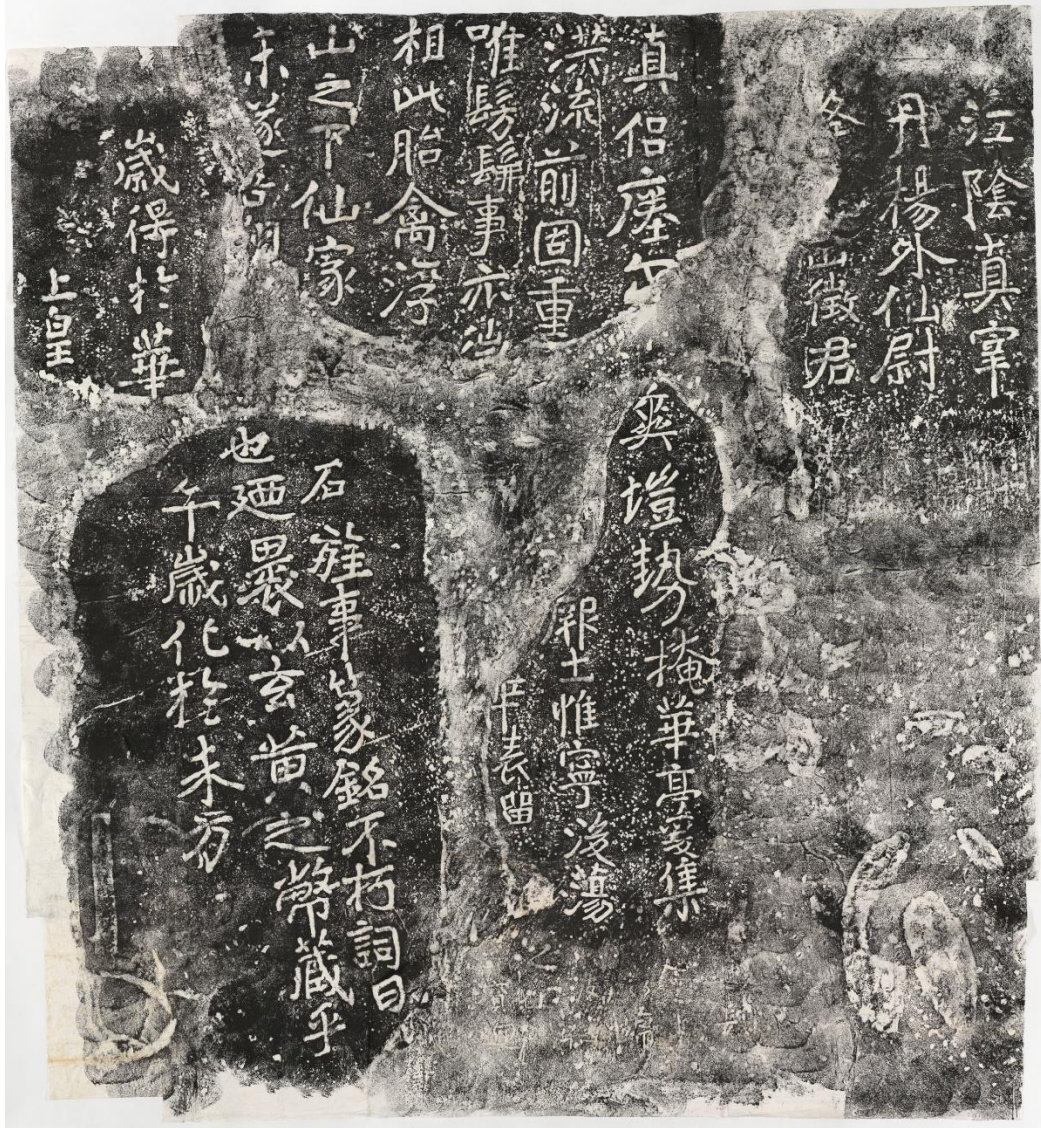 江陰真宰
丹楊外仙尉
山徵君
真侶瘞尔
洪流前固重
唯髣髴事亦
相此胎禽浮
山之下仙家
未遂吾翔
歲得於華
上皇
爽塏勢掩華亭爰集
土惟寧後蕩
表留
石旌事篆銘不朽詞曰
也迺裹以玄黄之幣藏乎
午歲化於朱方